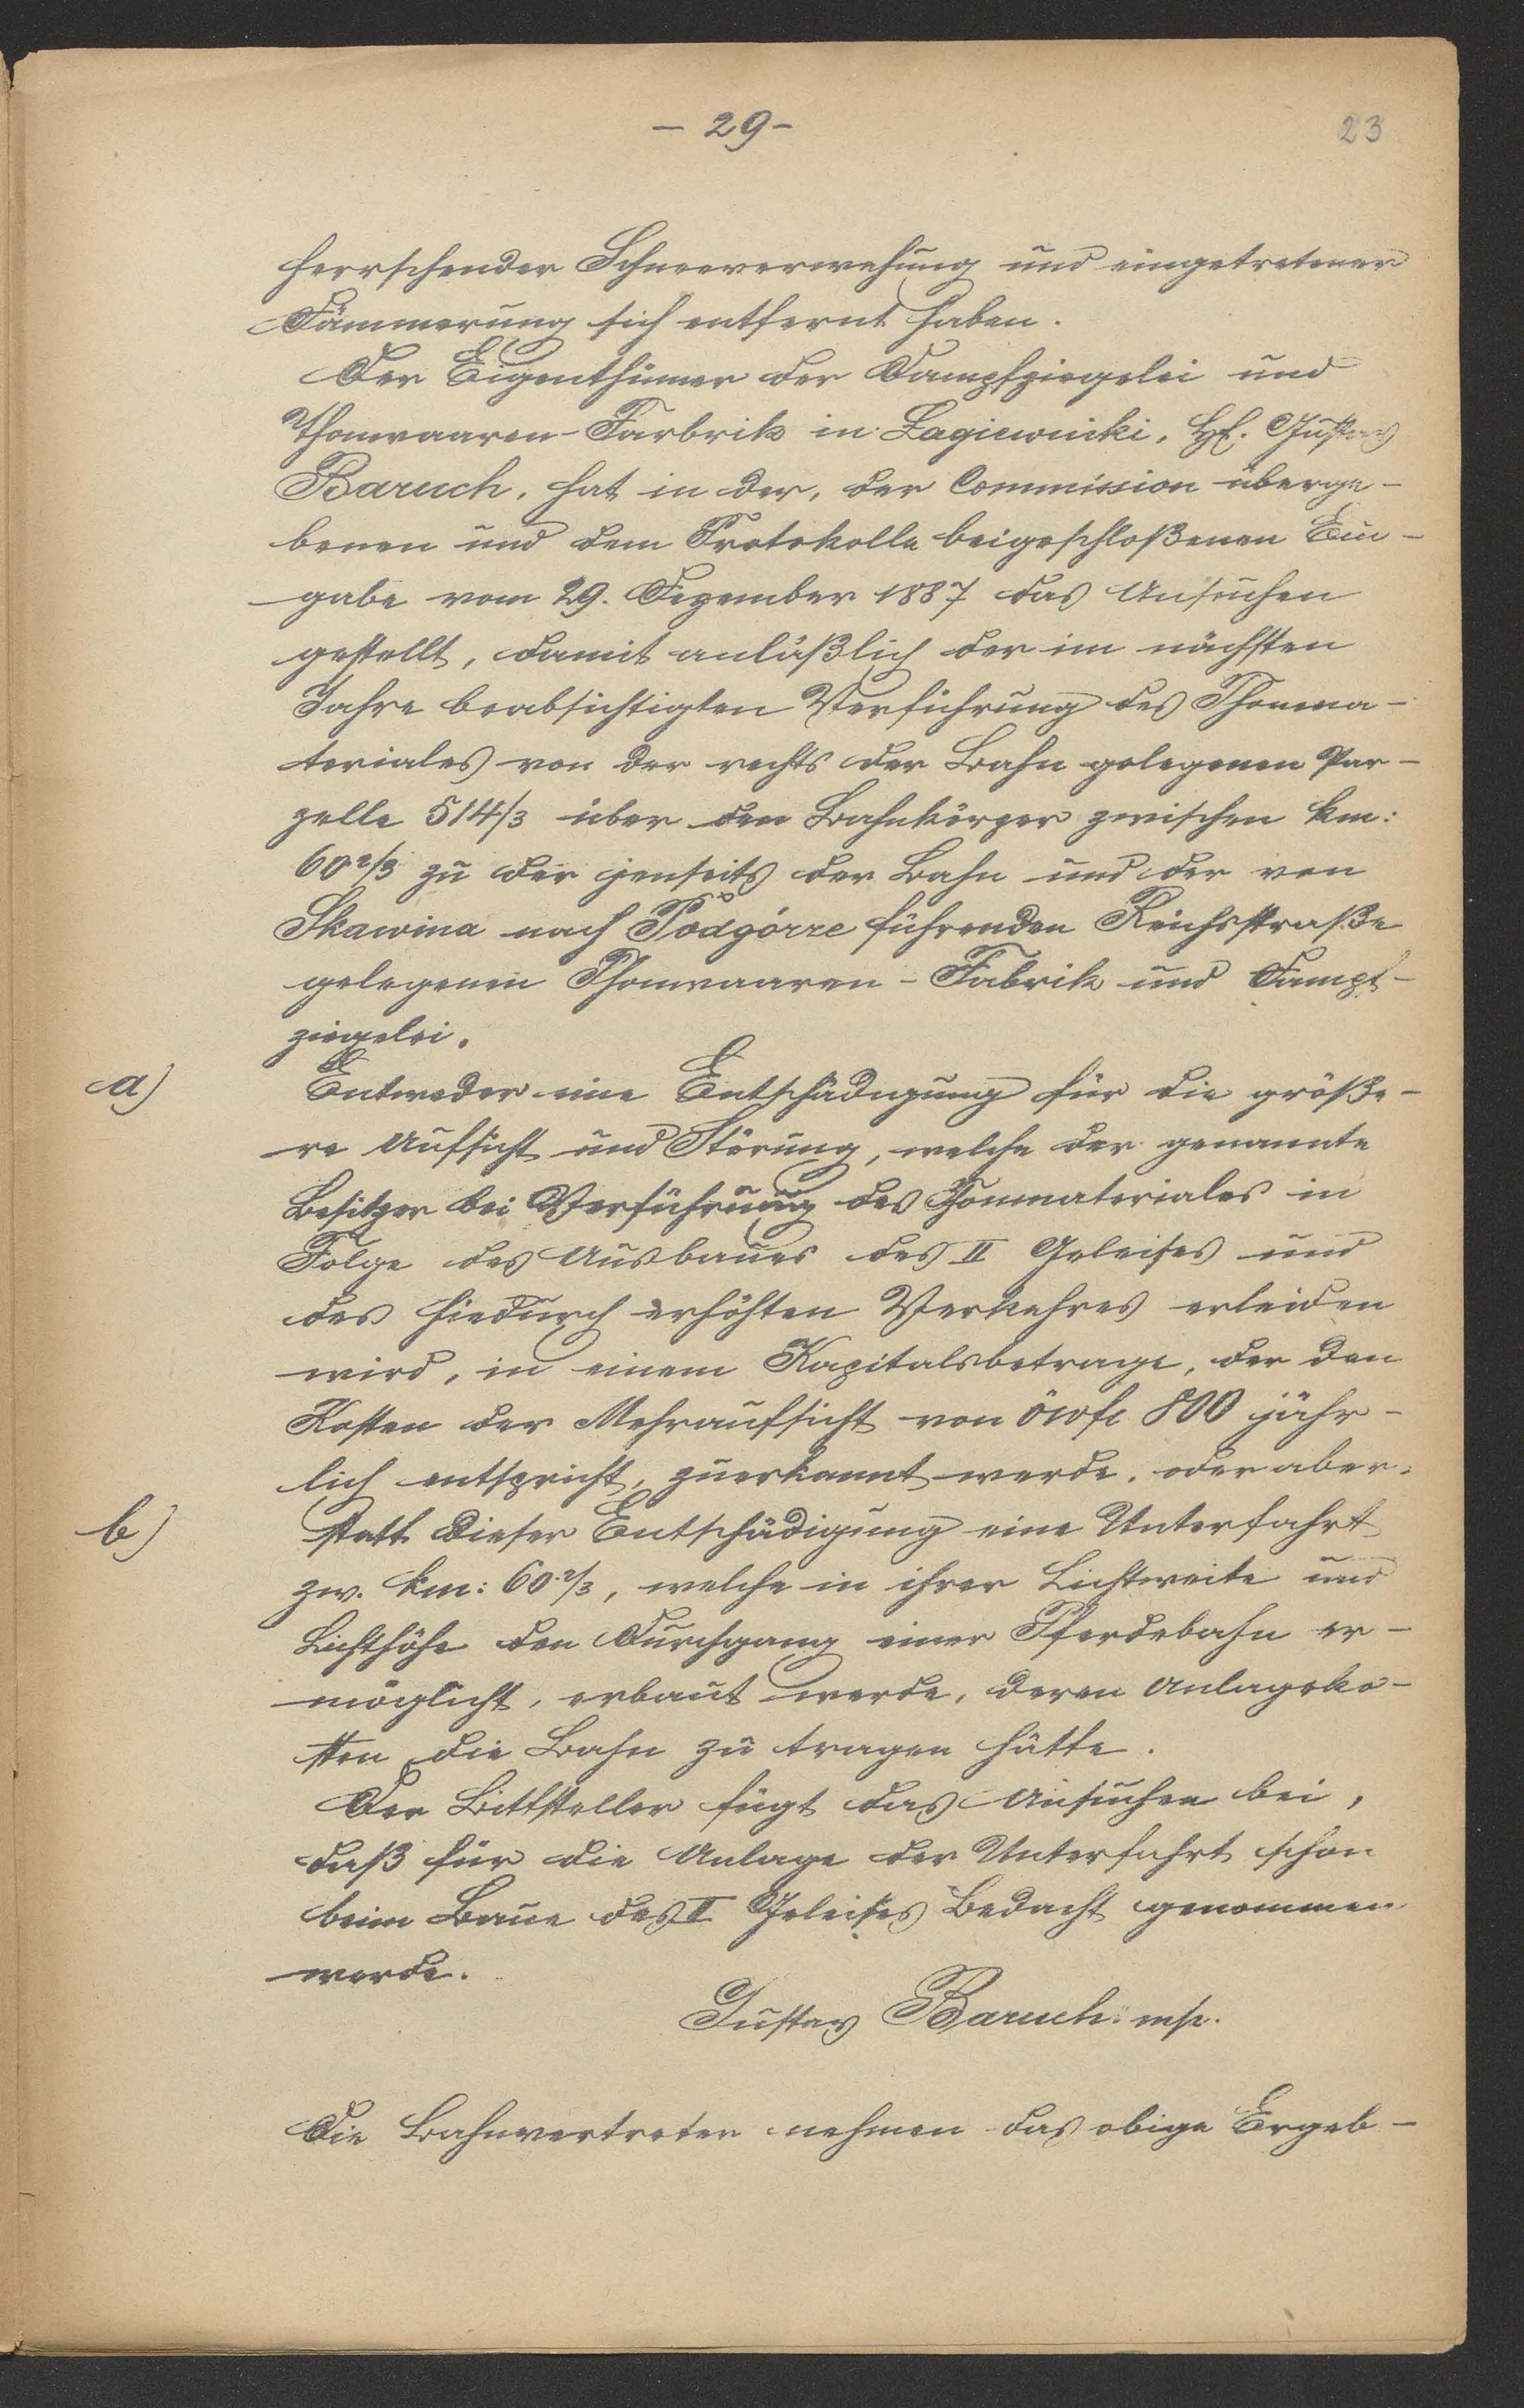 - 29 -
23
herrschender Schneeverwehung und eingetretener
Dämmerung sich entfernt haben.
Der Eigenthümer der Dampfziegelei und
Thonwaaren-Farbrik in Lagiewniki, H. Gustav
Baruch, hat in der, der Commission überge-
benen und dem Protokolle beigeschloßenen Ein-
gabe vom 29. Dezember 1887 das Ansuchen
gestellt, damit anläßlich der im nächsten
Jahre beabsichtigten Verführung des Thonma-
teriales von der rechts der Bahn gelegenen Par-
zelle 514/3 über den Bahnkörper zwischen km:
60 2/3 zu der jenseits der Bahn und der von
Skawina nach Podgórze führenden Reichsstraße
gelegenen Thonwaaren-Fabrik und Dampf-
ziegelei.
a) Entweder eine Entschädigung für die größe-
re Aufsicht und Störung, welche der genannte
Besitzer bei Verführung des Thonmateriales in
Folge des Ausbaues des II Geleises und
des hiedurch erhöhten Verkehres erleiden
wird, in einem Kapitalsbetrage, der den
Kosten der Mehraufsicht von öwfl 800 jähr-
lich entspricht, zuerkannt werde. oder aber:
b) statt dieser Entschädigung eine Unterfahrt
zw. km: 60.2/3, welche in ihrer Lichtweite und
Lichthöhe den Durchgang einer Pferdebahn er-
möglicht, erbaut werde, deren Anlageko-
sten die Bahn zu tragen hätte.
Der Bittsteller fügt das Ansuchen bei,
daß für die Anlage der Unterfahrt schon
beim Baue des II Geleises Bedacht genommen
werde.
Gustav Baruch. mp.
Die Bahnvertreter nehmen das obige Ergeb-